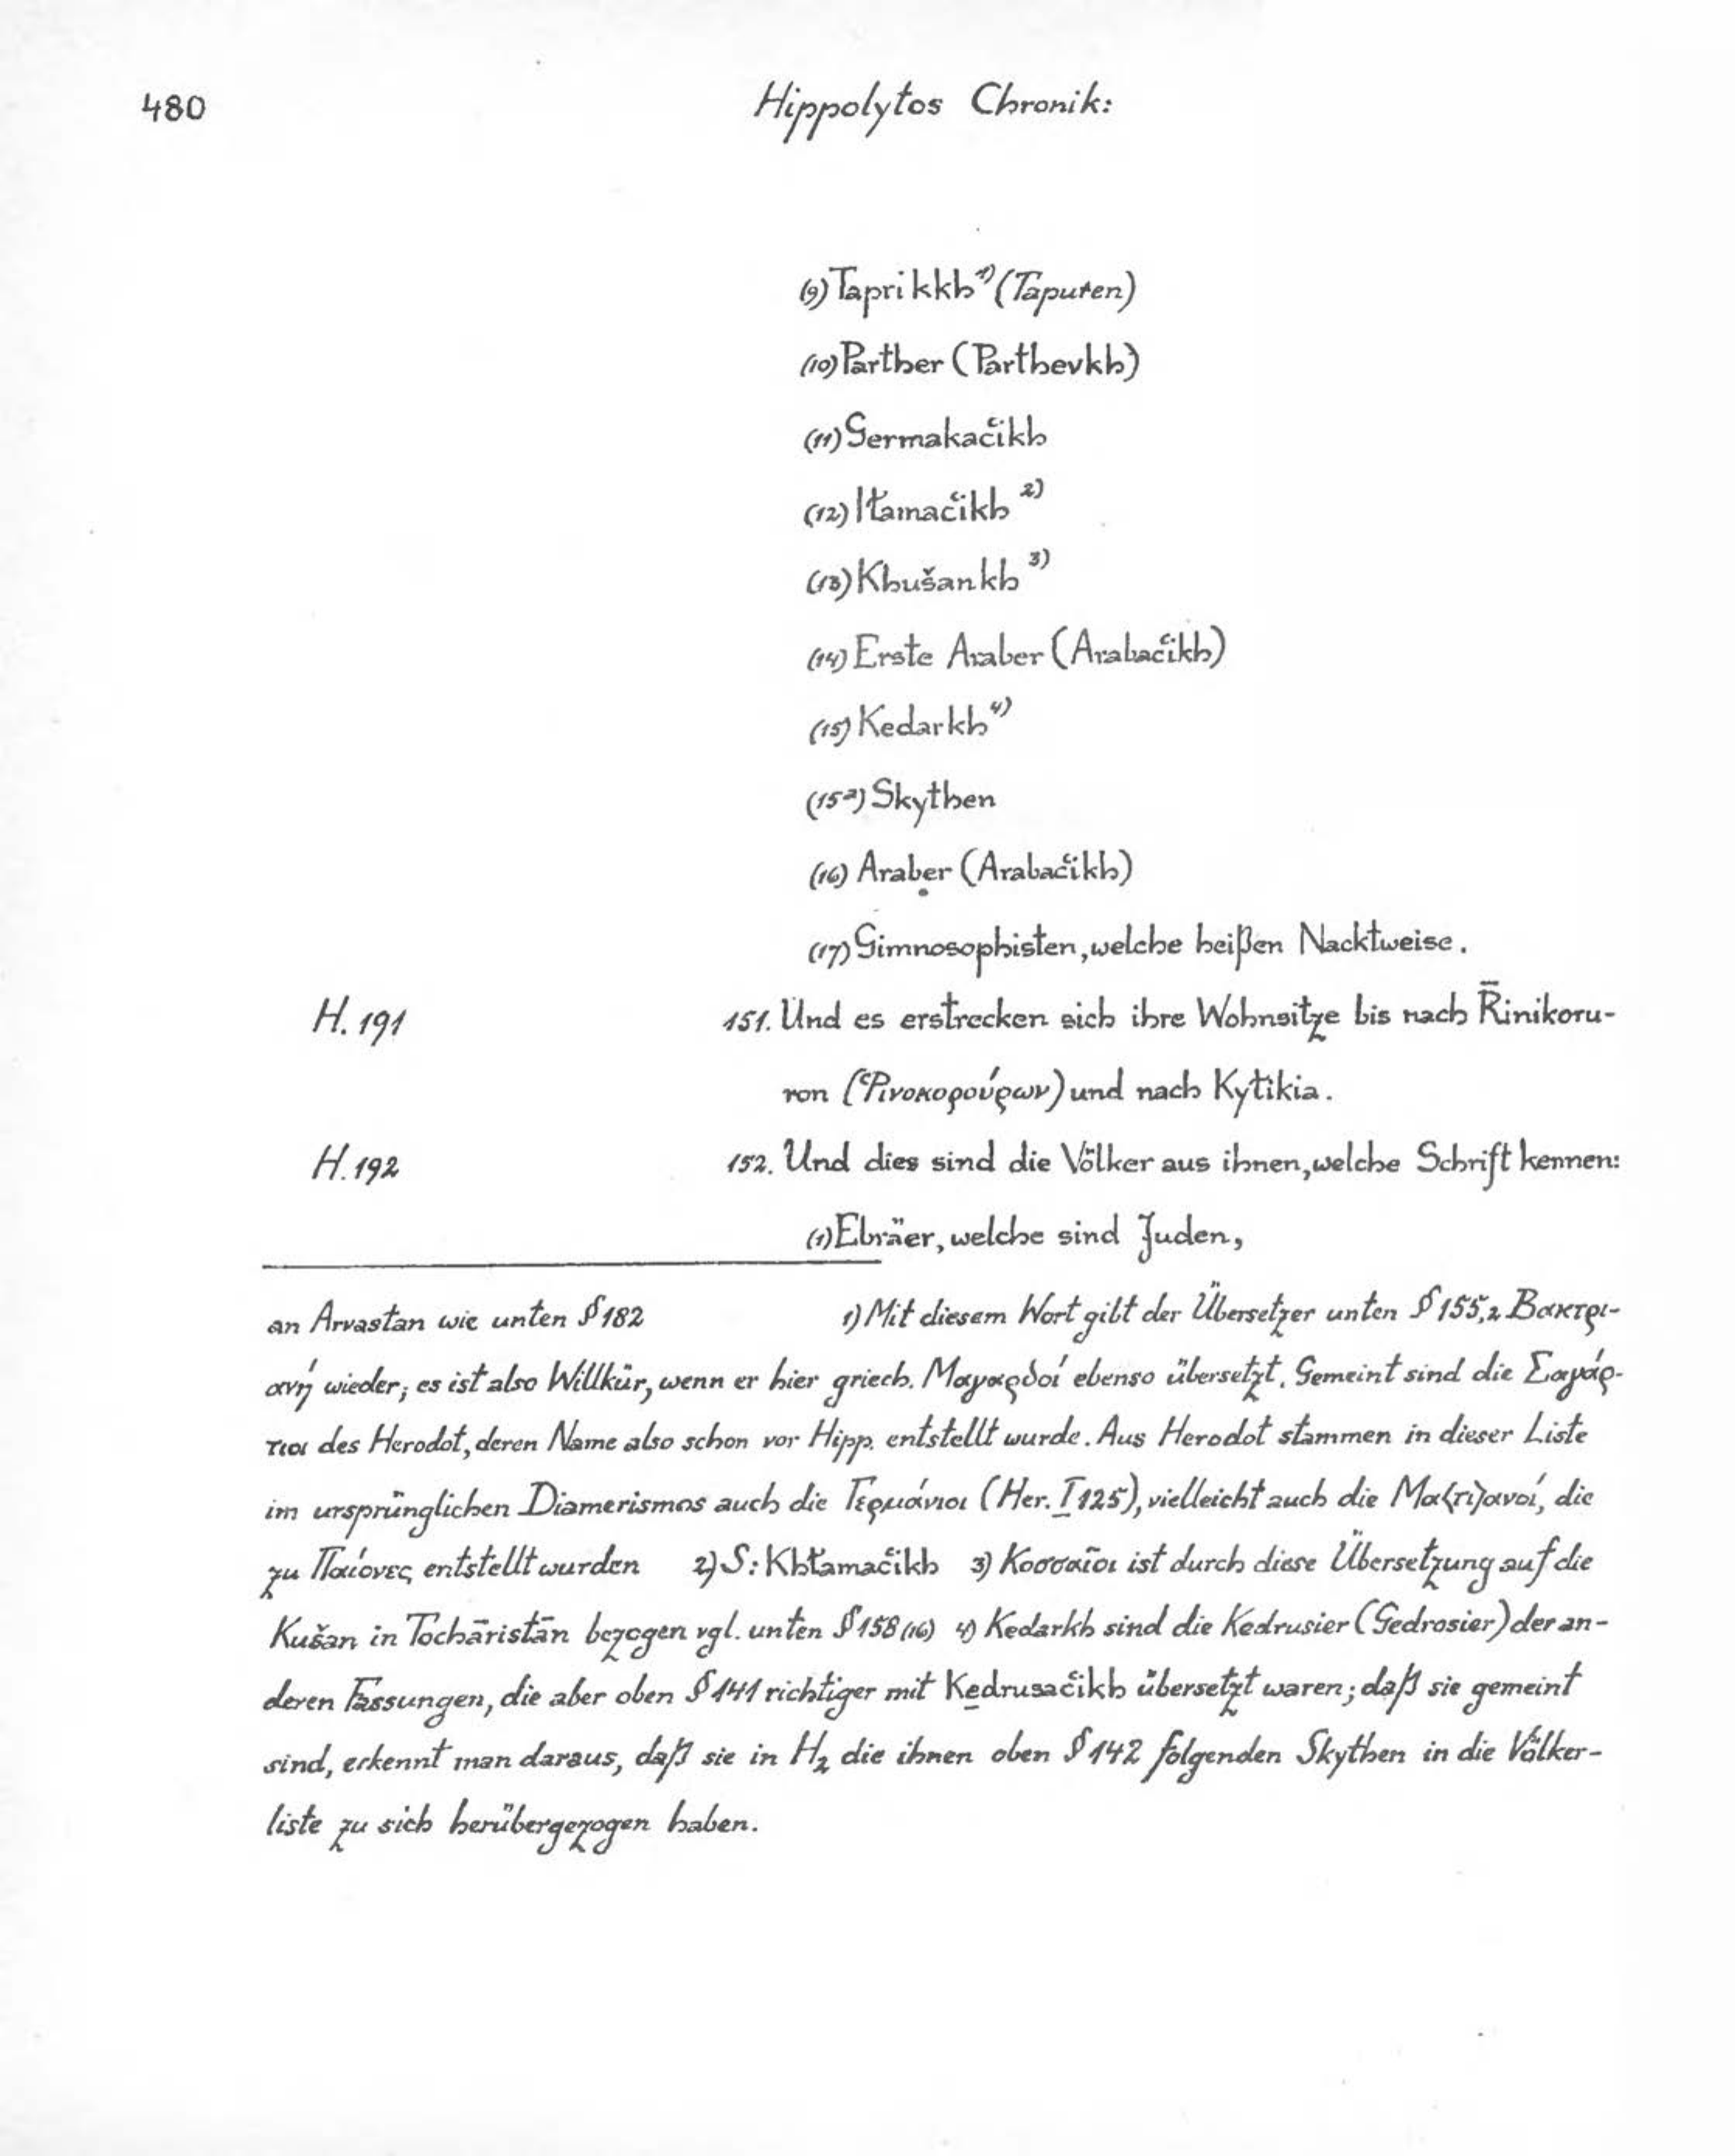 480
Hippolytos Chronik:
(9) Taprikkh¹⁾ (Tapuren)
(10) Parther (Parthevkh)
(11) Germakac̔ikh
(12) Iłamac̔ikh ²⁾
(13) Khušankh ³⁾
(14) Erste Araber (Arabac̔ikh)
(15) Kedarkh⁴⁾
(15ᵃ) Skythen
(16) Araber (Arabac̔ikh)
(17) Gimnosophisten, welche heißen Nacktweise.
H. 191 151. Und es erstrecken sich ihre Wohnsitze bis nach R̄inikoru-
ron (Ῥινοκορούρων) und nach Kytikia.
H. 192 152. Und dies sind die Völker aus ihnen, welche Schrift kennen:
(1) Ebräer, welche sind Juden,
an Arvastan wie unten § 182 1) Mit diesem Wort gibt der Übersetzer unten § 155,2 Βακτρι-
ανή wieder; es ist also Willkür, wenn er hier griech. Μαγαρδοί ebenso übersetzt. Gemeint sind die Σαγάρ-
τιοι des Herodot, deren Name also schon vor Hipp. entstellt wurde. Aus Herodot stammen in dieser Liste
im ursprünglichen Diamerismos auch die Γερμάνιοι (Her. I 125), vielleicht auch die Μα⟨τι⟩ανοί, die
zu Παίονες entstellt wurden 2) S: Khłamac̔ikh 3) Κοσσαῖοι ist durch diese Übersetzung auf die
Kušan in Tochāristān bezogen vgl. unten § 158 (16) 4) Kedarkh sind die Kedrusier (Gedrosier) der an-
deren Fassungen, die aber oben § 141 richtiger mit Kedrusac̔ikh übersetzt waren; daß sie gemeint
sind, erkennt man daraus, daß sie in H₂ die ihnen oben § 142 folgenden Skythen in die Völker-
liste zu sich herübergezogen haben.